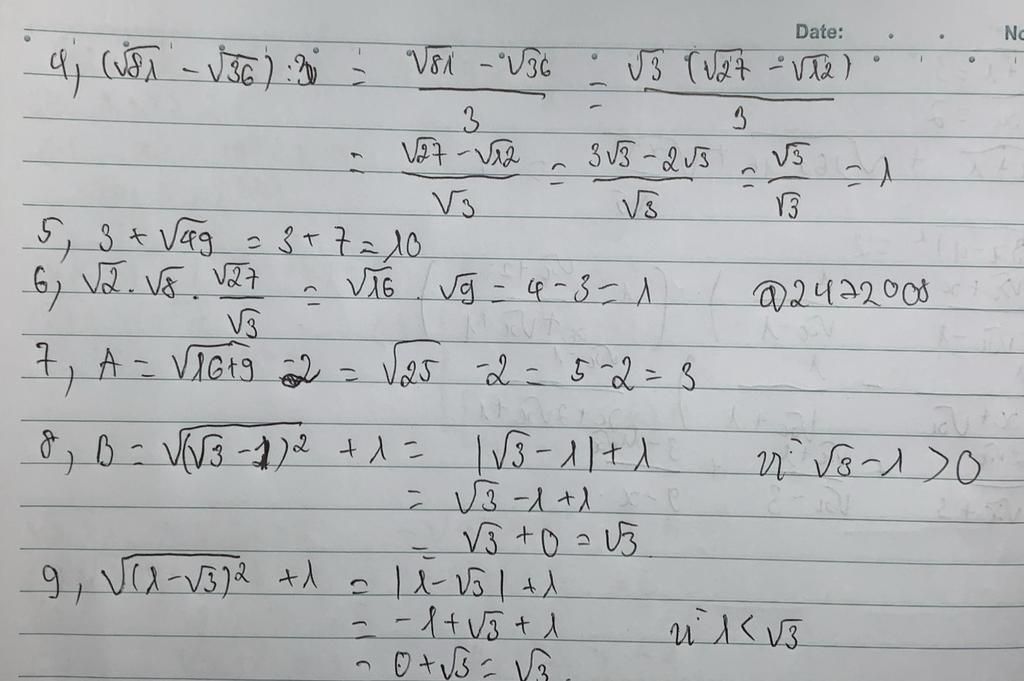 Date: No
4, (√81 - √36) : 3 = (√81 - √36)/3 = √3 (√27 - √12)/3
= (√27 - √12)/√3 = (3√3 - 2√3)/√3 = √3/√3 = 1
5, 3 + √49 = 3 + 7 = 10
6, √2 . √8 . √27/√3 = √16 . √9 = 4 - 3 = 1 @2472008
7, A = √(16+9) - 2 = √25 - 2 = 5 - 2 = 3
8, B = √((√3 - 1)²) + 1 = |√3 - 1| + 1 vì √3 - 1 > 0
= √3 - 1 + 1
= √3 + 0 = √3
9, √((1 - √3)²) + 1 = |1 - √3| + 1
= -1 + √3 + 1 vì 1 < √3
= 0 + √3 = √3.